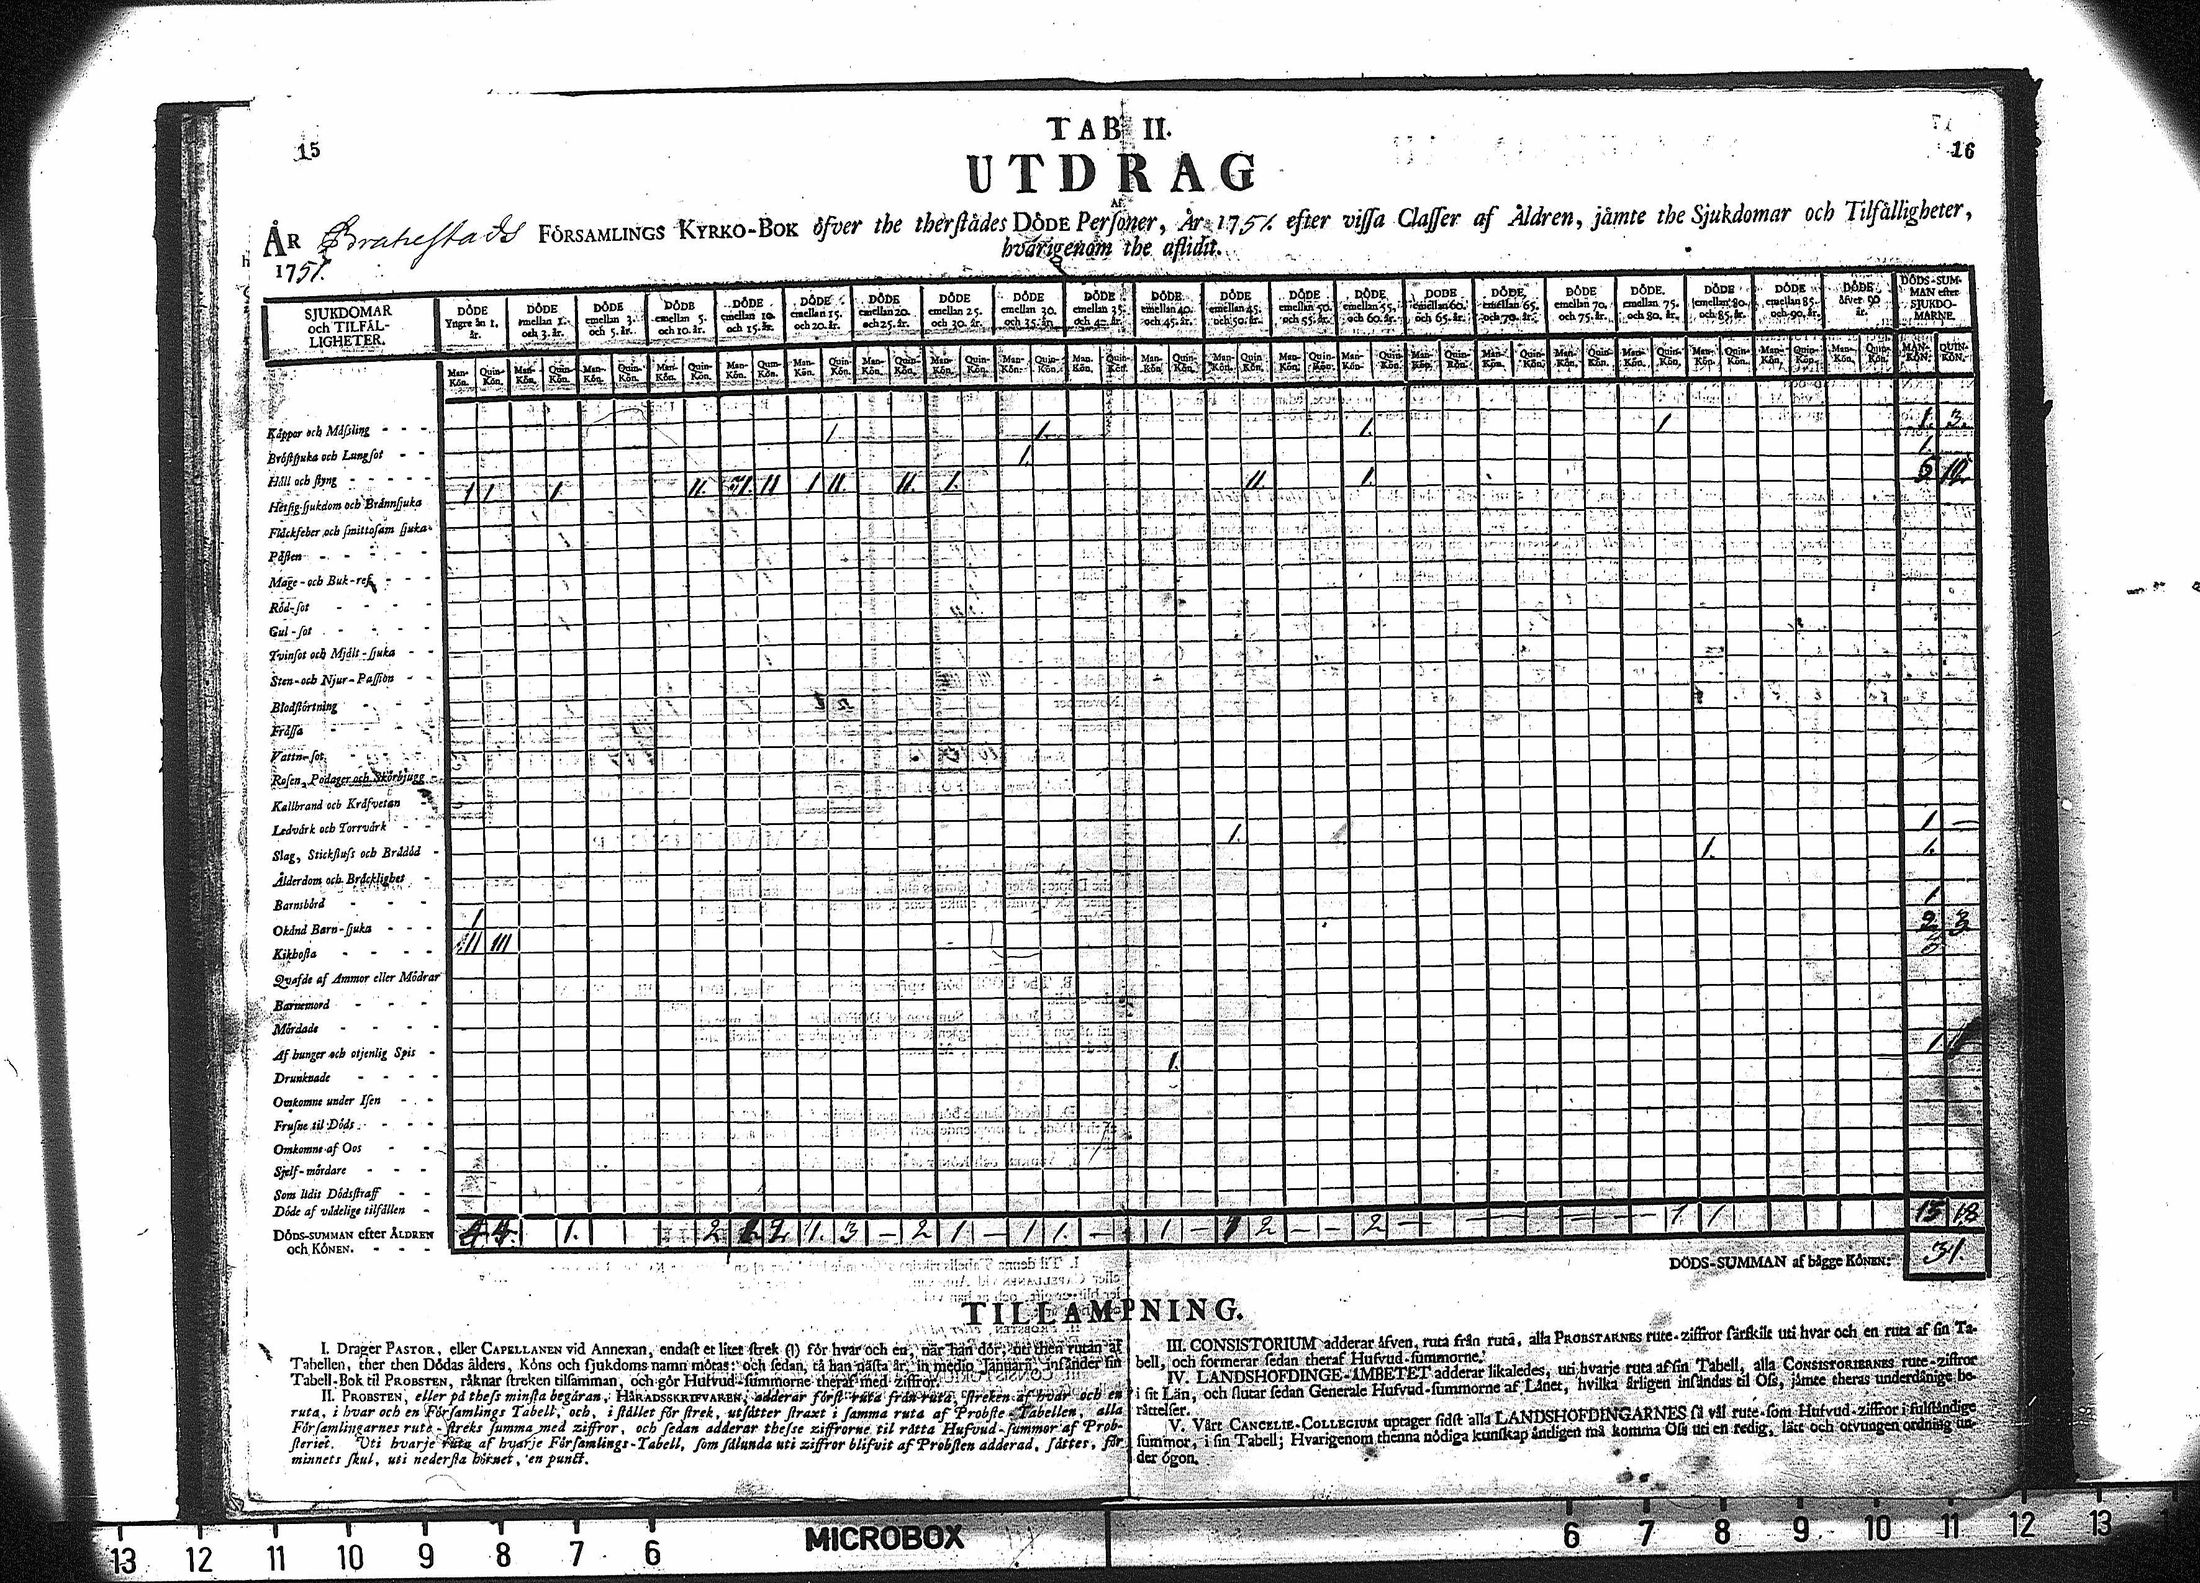 15
TAB II.
16
UTDRAG
AF
ÅR Brahestads FÖRSAMLINGS KYRKO-BOK öfver the therstädes DÖDE Personer, År 1751. efter vissa Classer af Åldren, jämte the Sjukdomar och Tilfälligheter,
1751. hvarigenom the aflidit.
SJUKDOMAR och TILFÄL-LIGHETER.
DÖDE Yngre än 1. år.
DÖDE emellan 1. och 3. år.
DÖDE emellan 3. och 5. år.
DÖDE emellan 5. och 10. år.
DÖDE emellan 10. och 15. år.
DÖDE emellan 15. och 20. år.
DÖDE emellan 20. och 25. år.
DÖDE emellan 25. och 30. år.
DÖDE emellan 30. och 35. år.
DÖDE emellan 35. och 40. år.
DÖDE emellan 40. och 45. år.
DÖDE emellan 45. och 50. år.
DÖDE emellan 50. och 55. år.
DÖDE emellan 55. och 60. år.
DÖDE emellan 60. och 65. år.
DÖDE emellan 65. och 70. år.
DÖDE emellan 70. och 75. år.
DÖDE emellan 75. och 80. år.
DÖDE emellan 80. och 85. år.
DÖDE emellan 85. och 90. år.
DÖDE öfver 90 år.
DÖDS-SUM-MAN efter SJUKDO-MARNE.
Man-Kön. Quin-Kön. Man-Kön. Quin-Kön. Man-Kön. Quin-Kön. Man-Kön. Quin-Kön. Man-Kön. Quin-Kön. Man-Kön. Quin-Kön. Man-Kön. Quin-Kön. Man-Kön. Quin-Kön. Man-Kön. Quin-Kön. Man-Kön. Quin-Kön. Man-Kön. Quin-Kön. Man-Kön. Quin-Kön. Man-Kön. Quin-Kön. Man-Kön. Quin-Kön. Man-Kön. Quin-Kön. Man-Kön. Quin-Kön. Man-Kön. Quin-Kön. Man-Kön. Quin-Kön. Man-Kön. Quin-Kön. Man-Kön. Quin-Kön. Man-Kön. Quin-Kön. MAN-KÖN. QUIN-KÖN.
Kåppor och Mäßling - - - 1 1. 1. 1 1. 3.
Bröstsjuka och Lungsot - - 1. 1.
Håll och styng - - - - 1 1 1. 11. 11 1 11. 11. 1. 11. 1.
Hetsig sjukdom och Brännsjuka
Fläckfeber och smittosam sjuka
Påsten - - - - -
Mage- och Buk-ref - - -
Röd-sot - - - -
Gul-sot - - - -
Tvinsot och Mjält-sjuka - -
Sten- och Njur-Passion - -
Blodstörtning - - -
Fråssa - - - -
Vattn-sot - - - -
Rosen, Podager och Skörbjugg -
Kallbrand och Kräfvetan -
Ledvärk och Torrvärk - - 1. 1 —
Slag, Stickfluss och Bråddöd - 1. 1.
Ålderdom och Bräcklighet -
Barnsbörd - - - 1
Okänd Barn-sjuka - - - 1 2 3
Kikhosta - - - - 111 111
Qvafde af Ammor eller Mödrar
Barnemord - - - -
Mördade - - - -
Af hunger och otjenlig Spis - 1
Drunknade - - - - 1.
Omkomne under Isen - - -
Frusne til Döds - - -
Omkomne af Oos - -
Sjelf-mördare - - -
Som lidit Dödsstraff - -
Döde af vådelige tilfällen -
DÖDS-SUMMAN efter ÅLDREN och KÖNEN. - - - 4 4. 1. 2 2 1. 3 — 2 1 — 1 1. — 1 — 1 2 — — 2 — 1. 1 13 18
DÖDS-SUMMAN af bägge KÖNEN: 31.
TILLÄMPNING.
I. Drager PASTOR, eller CAPELLANEN vid Annexan, endast et litet strek (1) för hvar och en, när han dör, uti then rutan af
Tabellen, ther then Dödas ålders, Köns och sjukdoms namn mötas: och sedan, tå han nästa år, in medio Januarii, insänder sin
Tabell-Bok til PROBSTEN, räknar streken tilsamman, och gör Hufvud-summorne theraf med ziffror.
II. PROBSTEN, eller på thess minsta begäran, HÄRADSKRIFVAREN, adderar först ruta från ruta, streken af hvar och en
ruta, i hvar och en Församlings Tabell, och, i stället för strek, utsätter straxt i samma ruta af Probste-Tabellen, alla
Församlingarnes rute-streks summa med ziffror, och sedan adderar thesse ziffrorne til rätta Hufvud-summor af Prob-
steriet. Uti hvarje ruta af hvarje Församlings-Tabell, som sålunda uti ziffror blifvit af Probsten adderad, sättes, för
minnets skul, uti nedersta hörnet, en punct.
III. CONSISTORIUM adderar äfven, ruta från ruta, alla PROBSTARNES rute-ziffror särskilt uti hvar och en ruta af sin Ta-
bell, och formerar sedan theraf Hufvud-summorne.
IV. LANDSHÖFDINGE-ÄMBETET adderar likaledes, uti hvarje ruta af sin Tabell, alla CONSISTORIERNES rute-ziffror
i sit Län, och slutar sedan Generale Hufvud-summorne af Länet, hvilka årligen insändas til Oss, jämte theras underdånige be-
rättelser.
V. Vårt CANCELIE-COLLEGIUM uptager sidst alla LANDSHÖFDINGARNES så väl rute-som Hufvud-ziffror i fulständige
summor, i sin Tabell; Hvarigenom thenna nödiga kunskap ändteligen må komma Oss uti en redig, lätt och otvungen ordning un-
der ögon.
13 12 11 10 9 8 7 6 MICROBOX 6 7 8 9 10 11 12 13